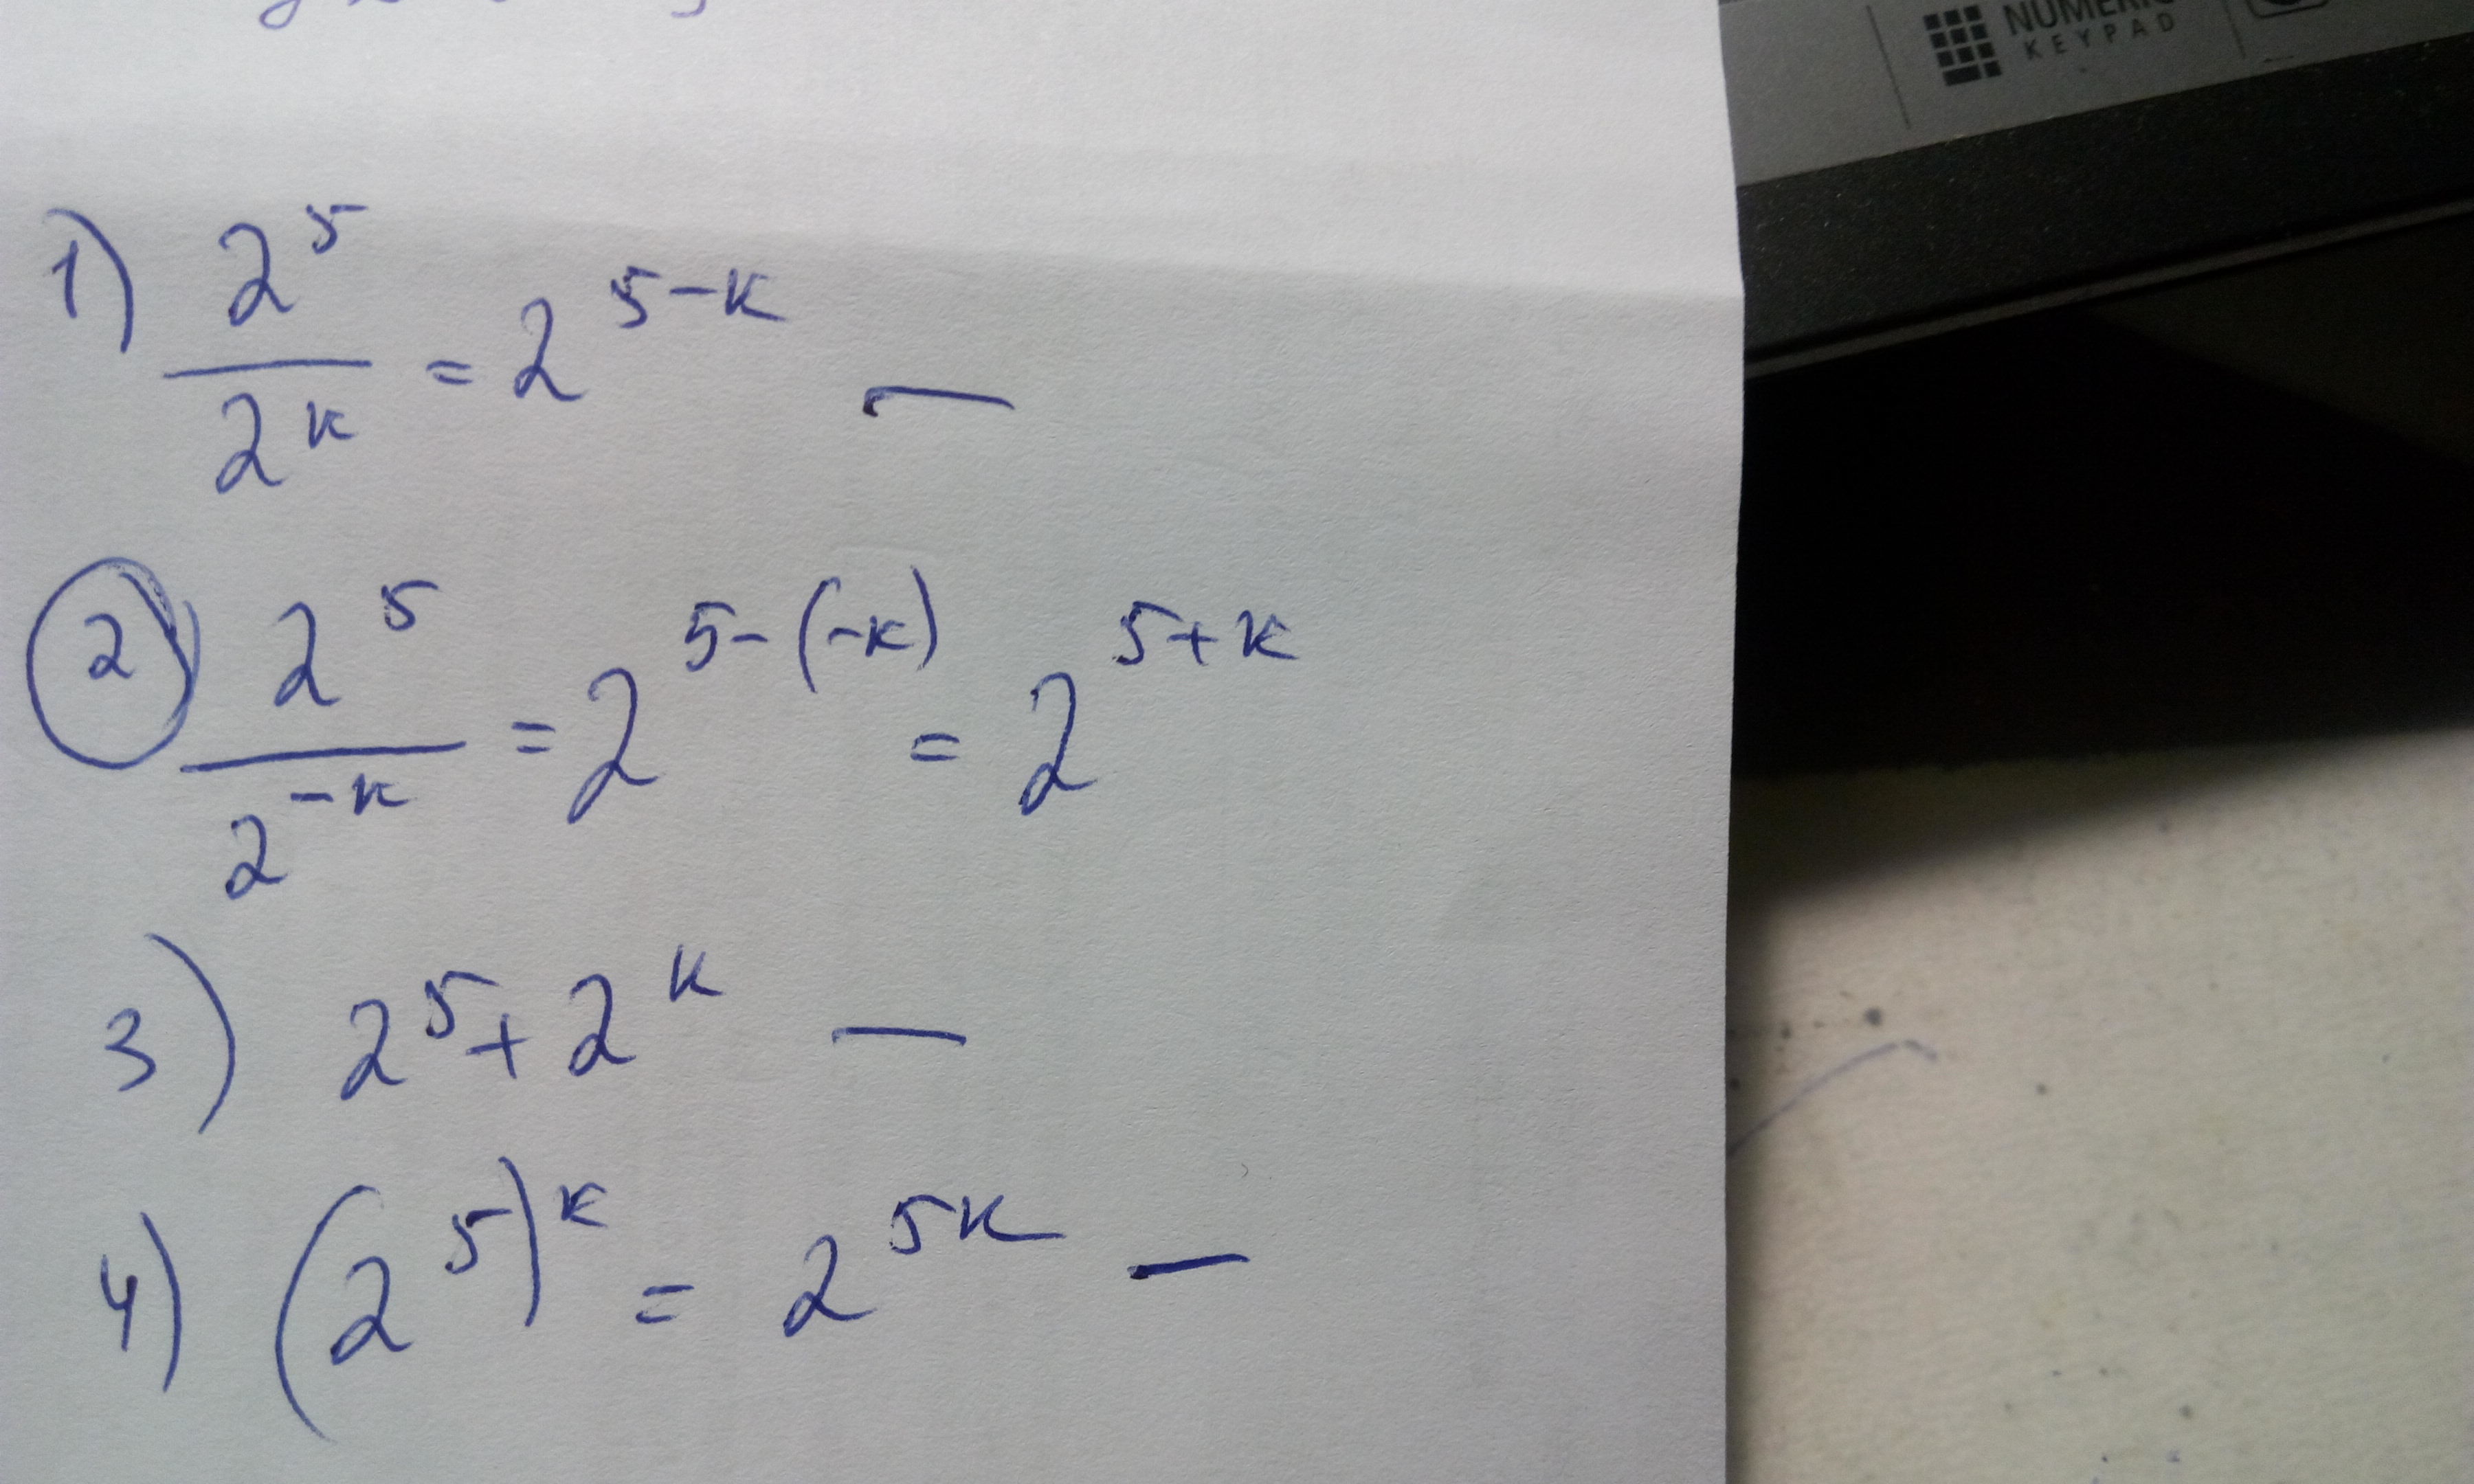 NUMERIC
KEYPAD
1) 2^5 / 2^k = 2^(5-k) —
2) 2^5 / 2^(-k) = 2^(5-(-k)) = 2^(5+k)
3) 2^5 + 2^k —
4) (2^5)^k = 2^(5k) —